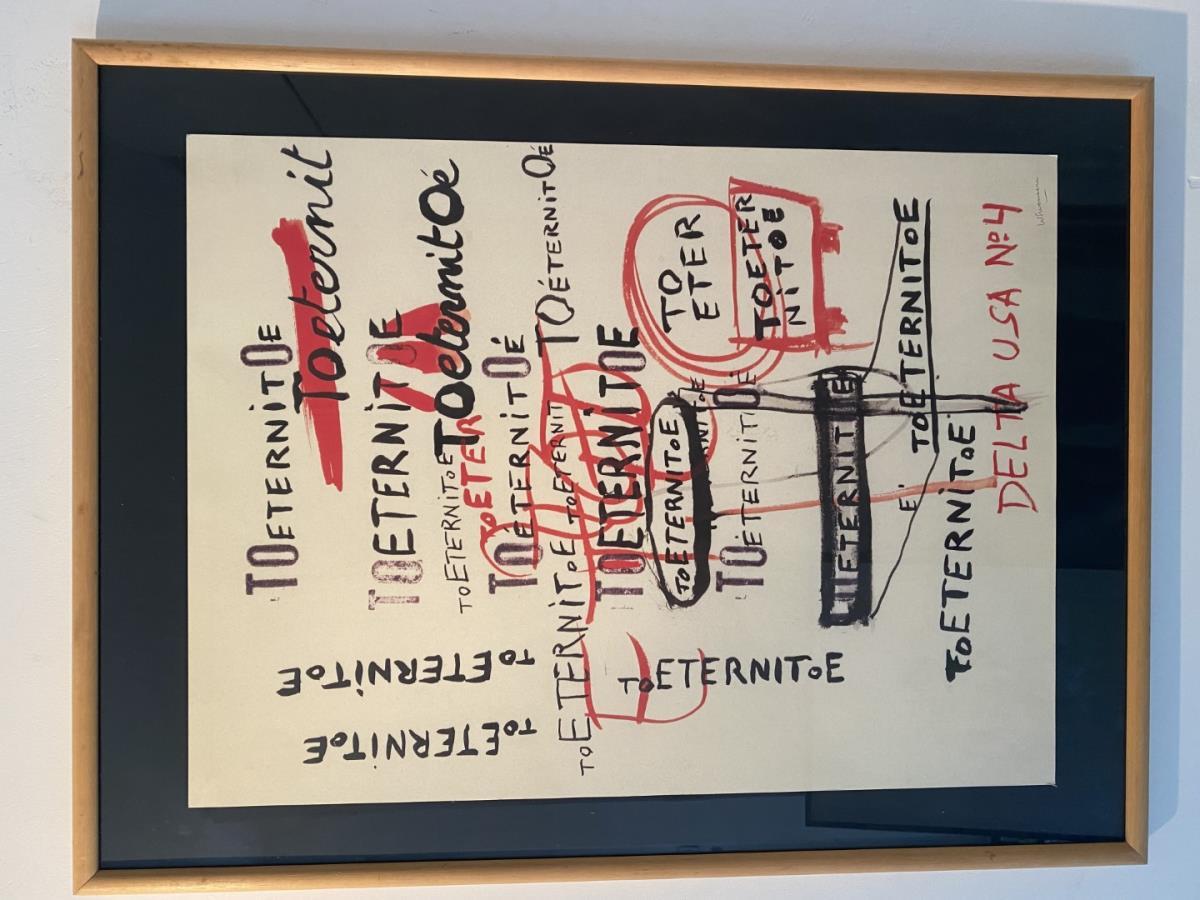 TOETERNITOE
Toeternit
TOETERNITOE
Toeternitoé
TOETERNITOE
TOETER
TOETERNITOÉ
TOÉTERNITOÉ
TOETERNITOE
TOETERNIT
TOETERNITOE
TO
ETER
TOETERNITOE
TOETER
NITOE
TOÉTERNITOÉ
ETERNITOE
É
TOETERNITOE
TOETERNITOE
DELTA USA Nº4
TOETERNITOE
TOETERNITOE
TOETERNITOE